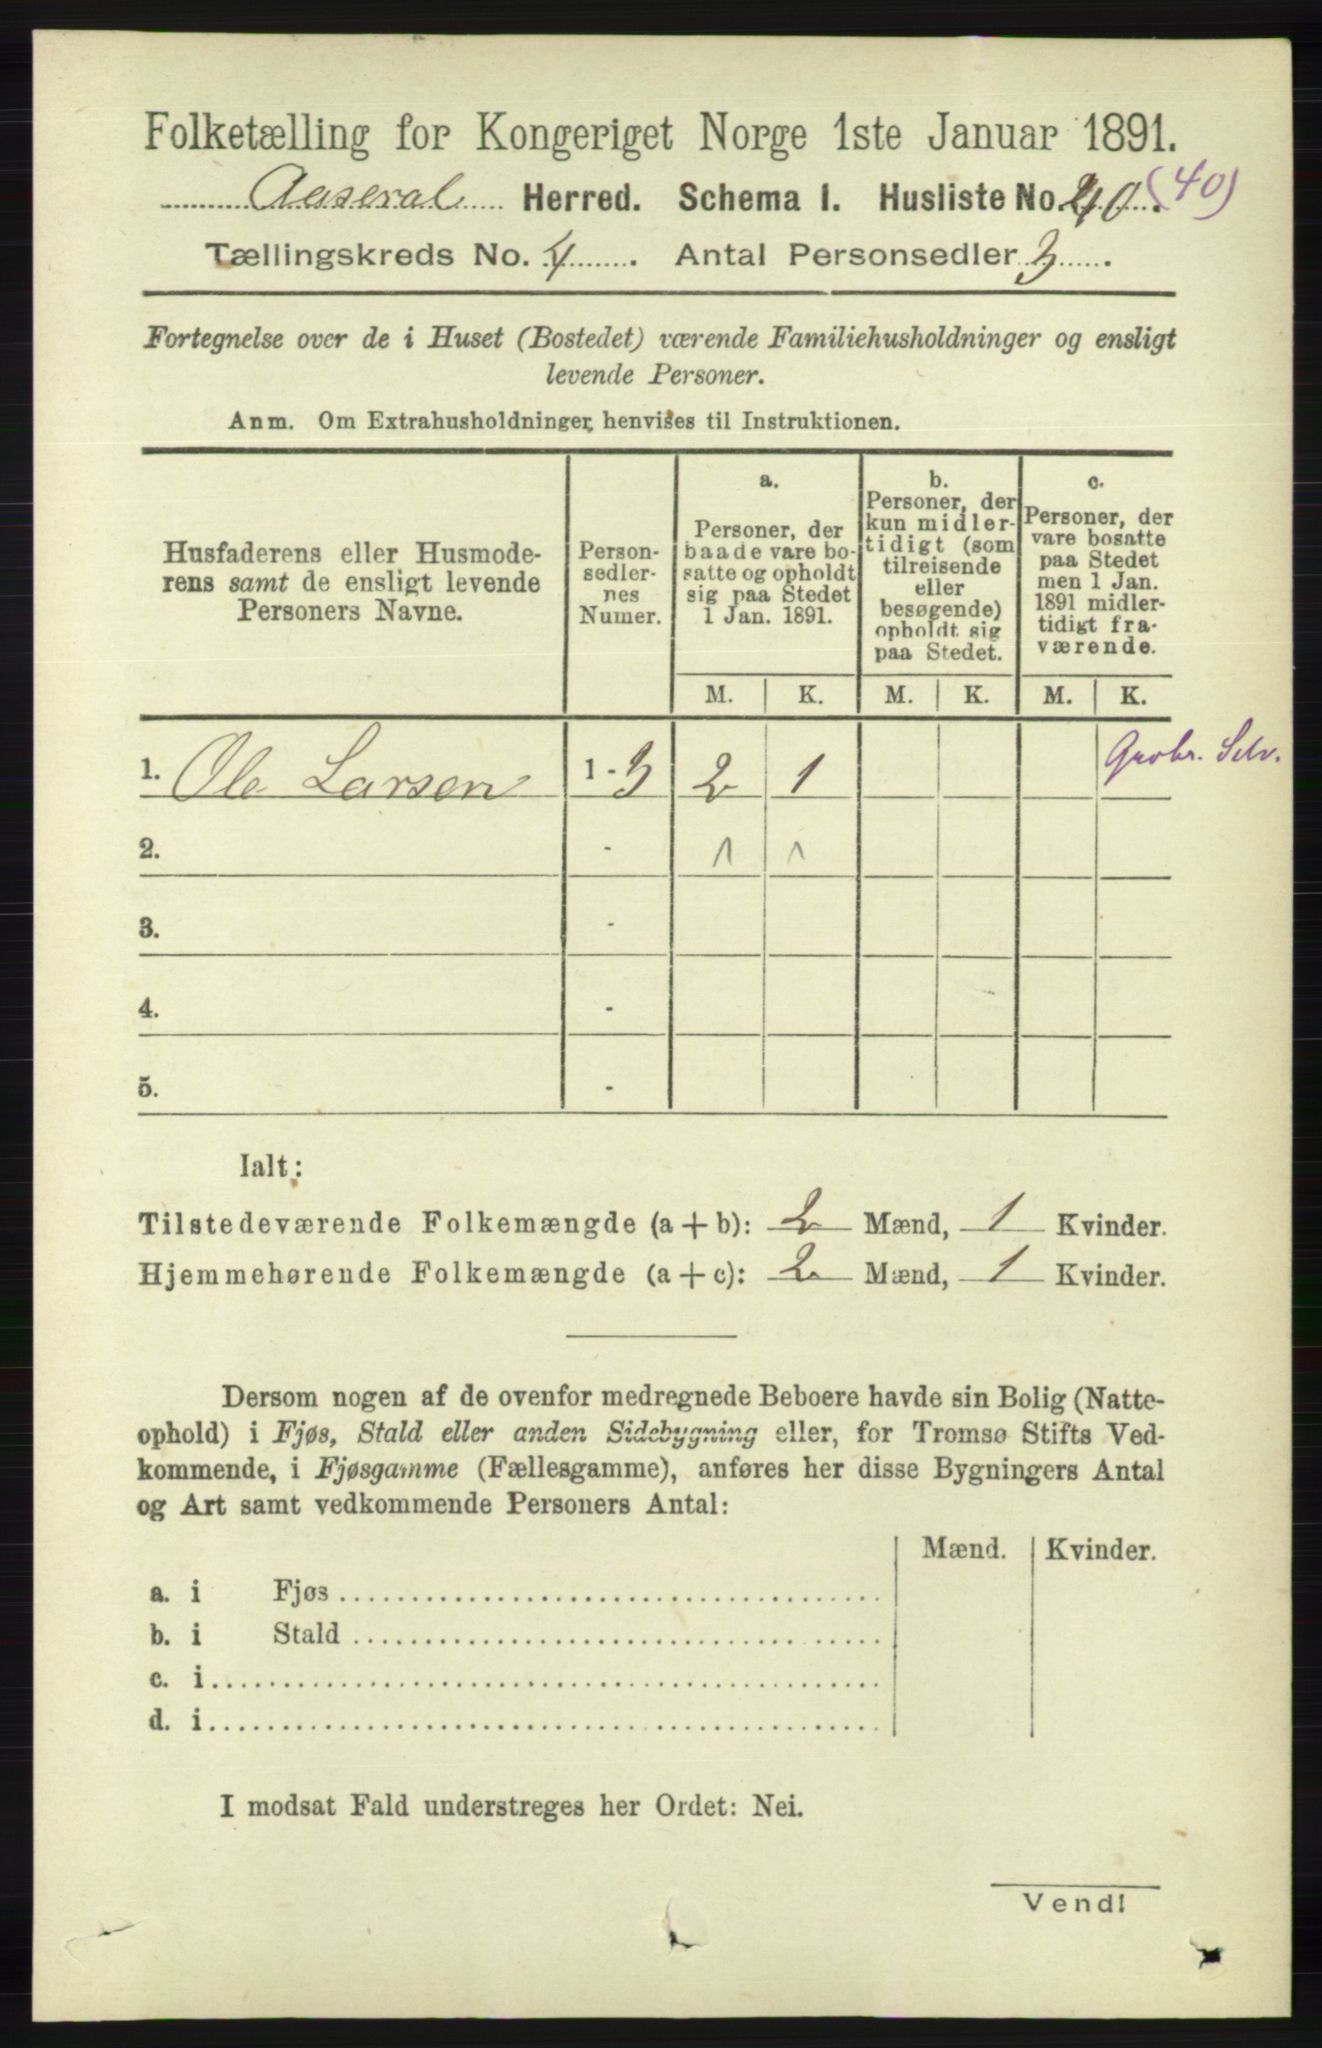 Folketælling for Kongeriget Norge 1ste Januar 1891.
Aaseral Herred. Schema I. Husliste No. 40 (40)
Tællingskreds No. 4. Antal Personsedler 3.
Fortegnelse over de i Huset (Bostedet) værende Familiehusholdninger og ensligt
levende Personer.
Anm. Om Extrahusholdninger henvises til Instruktionen.
Husfaderens eller Husmode-
rens samt de ensligt levende
Personers Navne.
Person-
sedler-
nes
Numer.
a.
Personer, der
baade vare bo-
satte og opholdt
sig paa Stedet
1 Jan. 1891.
b.
Personer, der
kun midler-
tidigt (som
tilreisende
eller
besøgende)
opholdt sig
paa Stedet.
c.
Personer, der
vare bosatte
paa Stedet
men 1 Jan.
1891 midler-
tidigt fra-
værende.
M. K. M. K. M. K.
1. Ole Larsen 1 - 3 2 1 Selv.
2. - 1 1
3. -
4. -
5. -
Ialt:
Tilstedeværende Folkemængde (a + b): 2 Mænd, 1 Kvinder.
Hjemmehørende Folkemængde (a + c): 2 Mænd, 1 Kvinder.
Dersom nogen af de ovenfor medregnede Beboere havde sin Bolig (Natte-
ophold) i Fjøs, Stald eller anden Sidebygning eller, for Tromsø Stifts Ved-
kommende, i Fjøsgamme (Fællesgamme), anføres her disse Bygningers Antal
og Art samt vedkommende Personers Antal:
Mænd. Kvinder.
a. i Fjøs
b. i Stald
c. i
d. i
I modsat Fald understreges her Ordet: Nei.
Vend!